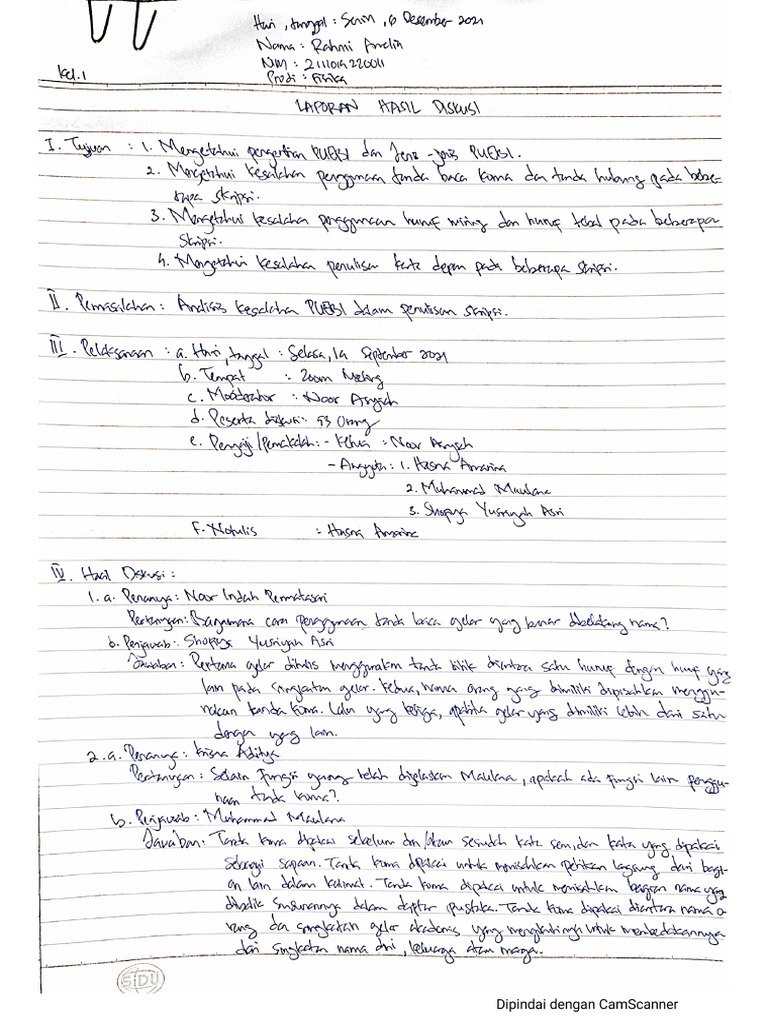 Hari, tanggal : Senin, 6 Desember 2021
Nama : Rahmi Amelia
NIM : 2111019220011
Kel. 1
Prodi : Fisika
LAPORAN HASIL DISKUSI
I. Tujuan : 1. Mengetahui pengertian PUEBI dan Jenis-jenis PUEBI.
2. Mengetahui kesalahan penggunaan tanda baca koma dan tanda hubung pada bebe-
rapa skripsi.
3. Mengetahui kesalahan penggunaan huruf miring dan huruf tebal pada beberapa
skripsi.
4. Mengetahui kesalahan penulisan kata depan pada beberapa skripsi.
II. Permasalahan : Analisis kesalahan PUEBI dalam penulisan skripsi.
III. Pelaksanaan : a. Hari, tanggal : Selasa, 14 September 2021
b. Tempat : Zoom Meeting
c. Moderator : Noor Aisyah
d. Peserta diskusi : 43 Orang
e. Penyaji/Pemakalah : - Ketua : Noor Aisyah
- Anggota : 1. Hasna Amarina
2. Muhammad Maulana
3. Shopya Yusriyah Asri
F. Notulis : Hasna Amarina
IV. Hasil Diskusi :
1. a. Penanya : Noor Indah Permatasari
Pertanyaan : Bagaimana cara penggunaan tanda baca gelar yang benar dibelakang nama?
b. Penjawab : Shopya Yusriyah Asri
Jawaban : Pertama gelar ditulis menggunakan tanda titik diantara satu huruf dengan huruf yang
lain pada singkatan gelar. Kedua, nama orang yang dimiliki dipisahkan menggu-
nakan tanda koma. Lalu yang ketiga, apabila gelar yang dimiliki lebih dari satu
dengan yang lain.
2. a. Penanya : Krisna Aditya
Pertanyaan : Selain fungsi yang telah dijelaskan Maulana, apakah ada fungsi lain penggu-
naan tanda koma?
b. Penjawab : Muhammad Maulana
Jawaban : Tanda koma dipakai sebelum dan/atau sesudah kata seru, dan kata yang dipakai
sebagai sapaan. Tanda koma dipakai untuk memisahkan petikan langsung dari bagi-
an lain dalam kalimat. Tanda koma dipakai untuk memisahkan bagian nama yg
dibalik susunannya dalam daftar pustaka. Tanda koma dipakai diantara nama o-
rang dan singkatan gelar akademis yang mengikutinya untuk membedakannya
dari singkatan nama diri, keluarga atau marga.
SIDU
Dipindai dengan CamScanner